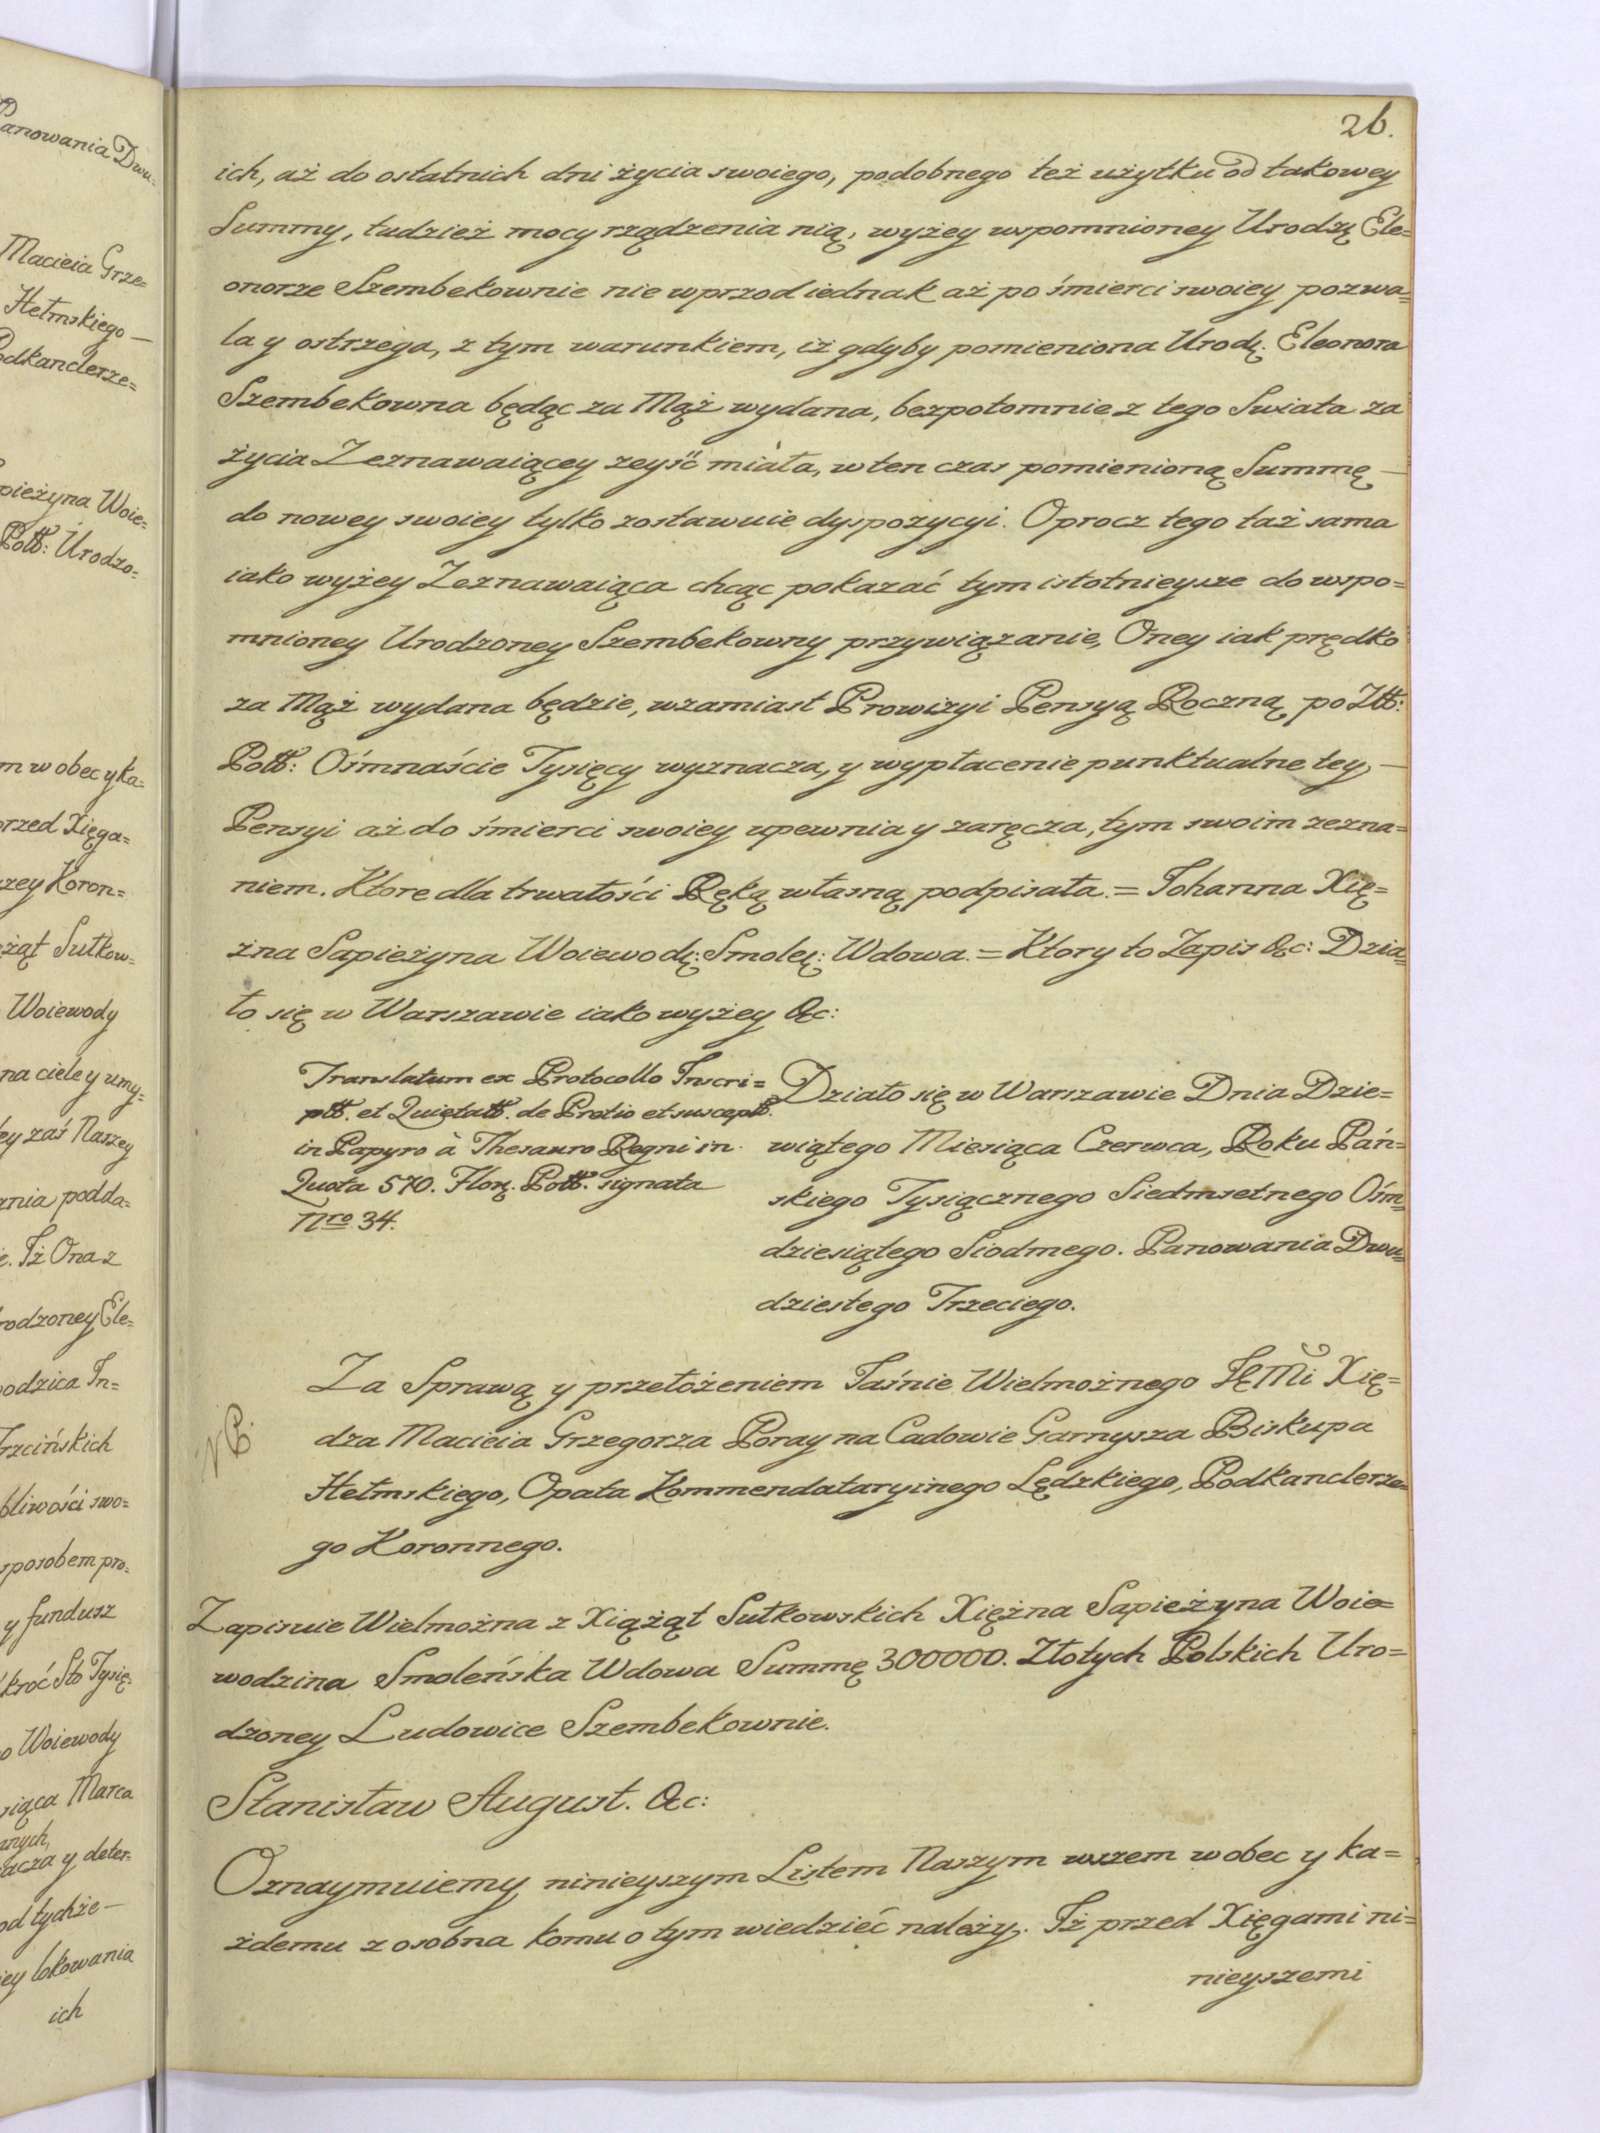 Panowania Dwu=
Macieia Grze=
Hełmskiego —
Podkanclerze=
pieżyna Woie=
Poll: Urodzo=
m w obec y ka=
przed Xięga=
szey Koron=
żąt Sułkow=
Woiewody
na ciele y umy=
ey zaś Naszey
ania podda=
ie. Iż Ona z
rodzoney Ele=
odzica In=
Trzcińskich
bliwości swo=
sposobem pro=
y fundusz
kroć Sto Tysię=
o Woiewody
siąca Marca
nnych,
acza y deter=
od tychże —
iey lokowania
ich
26.
ich, aż do ostatnich dni życia swoiego, podobnego też użytku od takowey
Summy, tudzież mocy rządzenia nią, wyżey wspomnioney Urodzę Ele=
onorze Szembekownie nie wprzod iednak aż po śmierci swoiey pozwa=
la y ostrzega, z tym warunkiem, iż gdyby pomieniona Urodę: Eleonora
Szembekowna będąc za Mąż wydana, bezpotomnie z tego Swiata za
życia Zeznawaiącey zeyść miała, w ten czas pomienioną Summę —
do nowey swoiey tylko zostawuie dyspozycyi. Oprocz tego taż sama
iako wyżey Zeznawaiąca chcąc pokazać tym istotnieysze do wspo=
mnioney Urodzoney Szembekowny przywiązanie, Oney iak prędko
za Mąż wydana będzie, wzamiast Prowizyi Pensyą Roczną po Zll:
Poll: Ośmnaście Tysięcy wyznacza, y wypłacenie punktualne tey —
Pensyi aż do śmierci swoiey upewnia y zaręcza, tym swoim zezna=
niem. Ktore dla trwałości Ręką własną podpisała. = Johanna Xię=
żna Sapieżyna Woiewodę: Smoleę: Wdowa. = Ktory to Zapis &c: Dzia=
ło się w Warszawie iako wyżey &c:
Translatum ex Protocollo Inscri=
ptt. et Quietatt. de Pretio et suscept.
in Papyro à Thesauro Regni in
Quota 570. Florę. Poll. signata
Nro 34.
Działo się w Warszawie Dnia Dzie=
wiątego Miesiąca Czerwca, Roku Pań=
skiego Tysiącznego Siedmsetnego Ośm=
dziesiątego Siodmego. Panowania Dwu=
dziestego Trzeciego.
Za Sprawą y przełożeniem Jaśnie Wielmożnego JĘMi Xię=
dza Macieia Grzegorza Poray na Cadowie Garnysza Biskupa
Hełmskiego, Opata Kommendataryinego Lędzkiego, Podkanclerze=
go Koronnego.
Zapisuie Wielmożna z Xiążąt Sułkowskich Xiężna Sapieżyna Woie=
wodzina Smoleńska Wdowa Summę 300000. Złotych Polskich Uro=
dzoney Ludowice Szembekownie.
Stanisław August. &c:
Oznaymuiemy ninieyszym Listem Naszym wszem w obec y ka=
żdemu z osobna komu o tym wiedzieć należy. Iż przed Xięgami ni=
nieyszemi